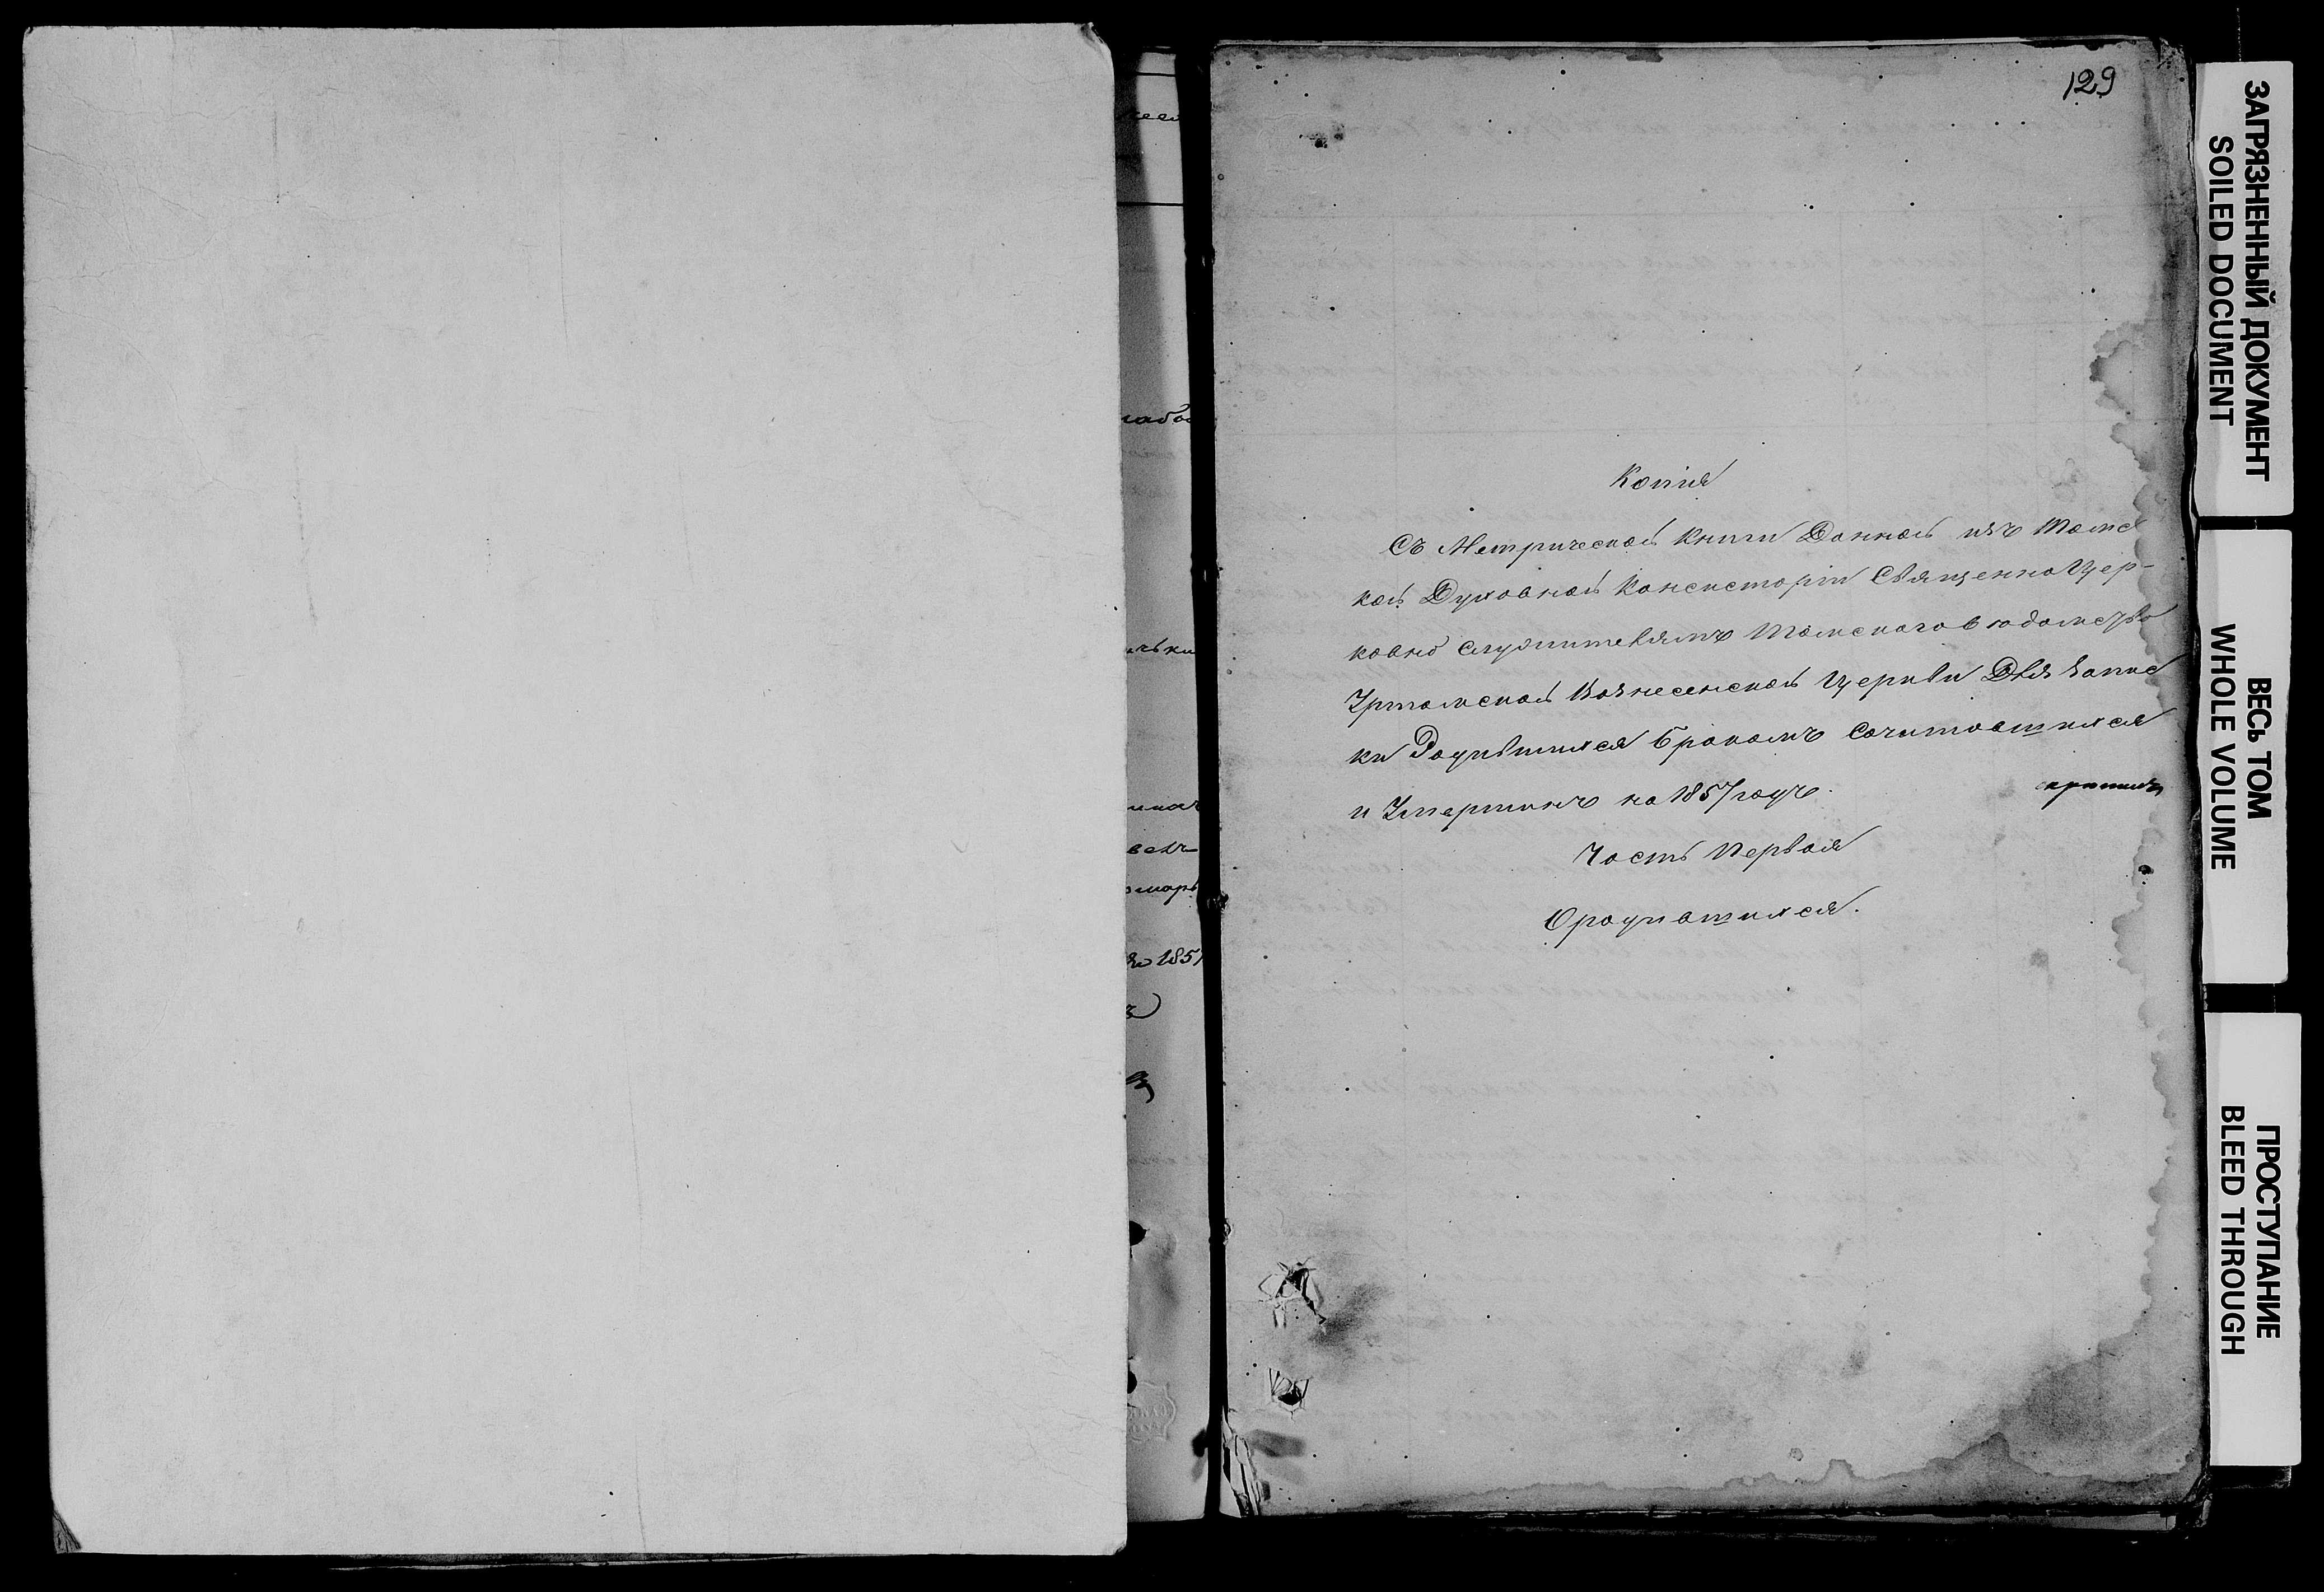 129
Копія
Съ Метрической книги Данной изъ Томс
кой Духовной Консисторіи Священно Цер-
ковно служителямъ Томскаго ведомства
Уртамской Вознесенской Церкви Для Запис
ки Родившихся Бракомъ Сочитавшихся
и Умершихъ на 1857 годъ.
Часть Первая
О родившихся.
1857
ЗАГРЯЗНЕННЫЙ ДОКУМЕНТ
SOILED DOCUMENT
ВЕСЬ ТОМ
WHOLE VOLUME
ПРОСТУПАНИЕ
BLEED THROUGH